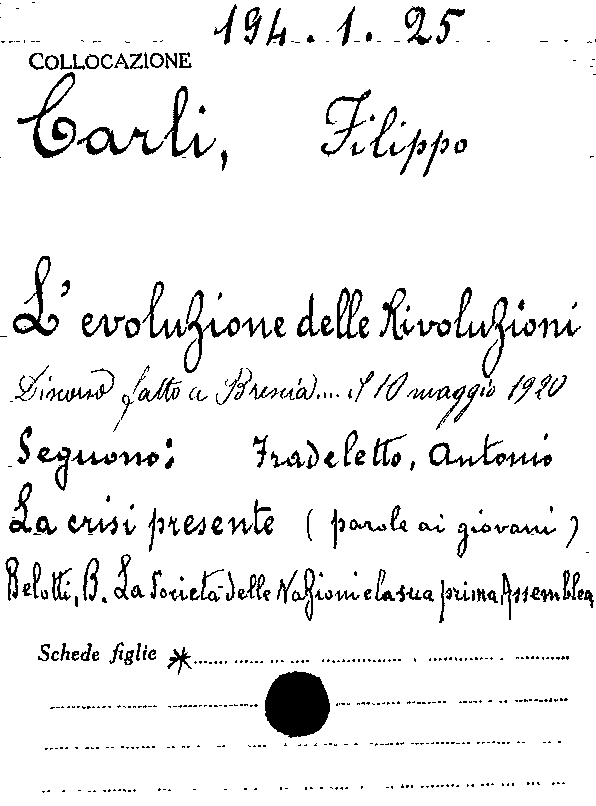 194. 1. 25
COLLOCAZIONE
Carli, Filippo
L'evoluzione delle Rivoluzioni
Discorso fatto a Brescia.... il 10 maggio 1920
Seguono: Fradeletto, Antonio
La crisi presente (parole ai giovani)
Belotti, B. La Società delle Nazioni e la sua prima Assemblea
Schede figlie *